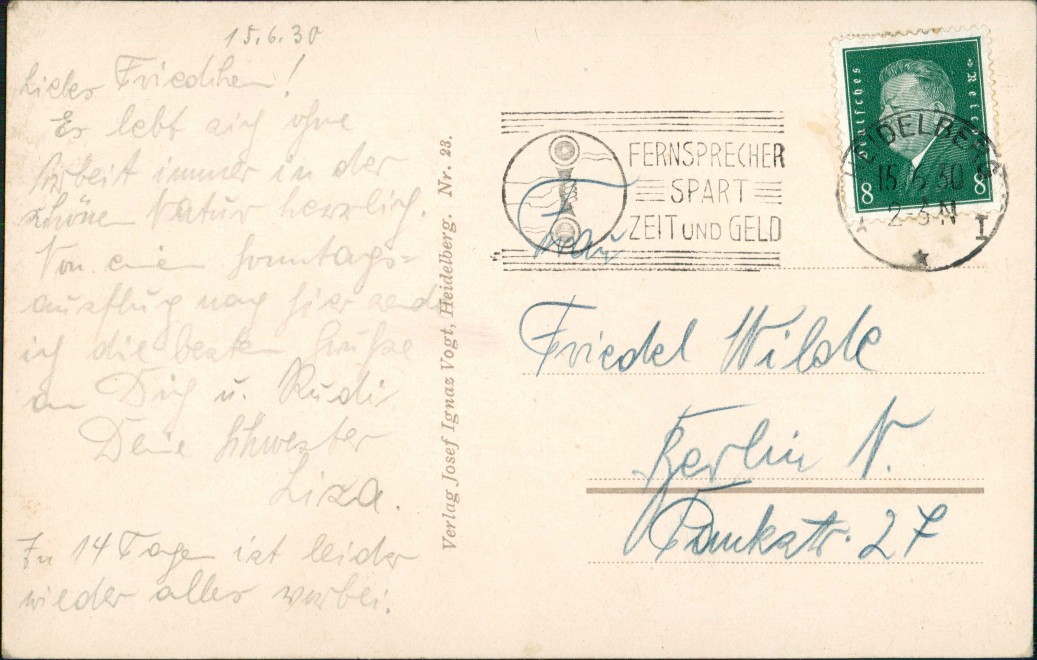 15.6.30
Liebes Friedchen!
Es lebt sich ohne
Arbeit immer in der
schönen Natur herrlich.
Von einem Sonntags=
ausflug nach hier send
ich die besten Grüße
an Dich u. Rudi
Deine Schwester
Liza.
In 14 Tagen ist leider
wieder alles vorbei.
Verlag Josef Ignaz Vogt, Heidelberg. Nr. 23.
FERNSPRECHER
SPART
ZEIT UND GELD
Deutsches Reich
8 8
HEIDELBERG
15.6.30
2-3 N
I
Frau
Friedel Wilde
Berlin N.
Pankstr. 27